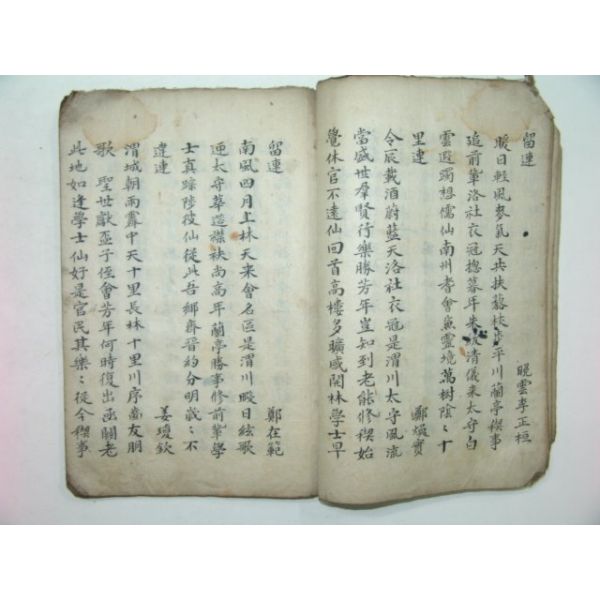 留連 晩雲李正桓
暖日輕風麥氣天共扶藜杖步平川蘭亭稧事
追前輩洛社衣冠揔暮年朱紱清儀來太守白
雲遐躅想儒仙南州耆會兼靈境萬樹陰〻十
里連 鄭煥實
令辰載酒蔚藍天洛社衣冠是渭川太守風流
當盛世群賢行樂勝芳年豈知到老能修稧始
覺休官不遠仙回首高樓多曠感閑林學士早
留連 鄭在範
南風四月上林天來會名區是渭川暇日絃歌
迎太守華造襟袂尚高年蘭亭勝事修前輩學
士真踪陸彼仙從此吾鄉齊晋約分明戒〻不
違連 姜瓊欽
渭城朝雨霽中天十里長林十里川序齒友朋
歌聖世獻盃子侄會芳年何時復出函關老
此地如逢學士仙好是官民其樂〻從今稧事